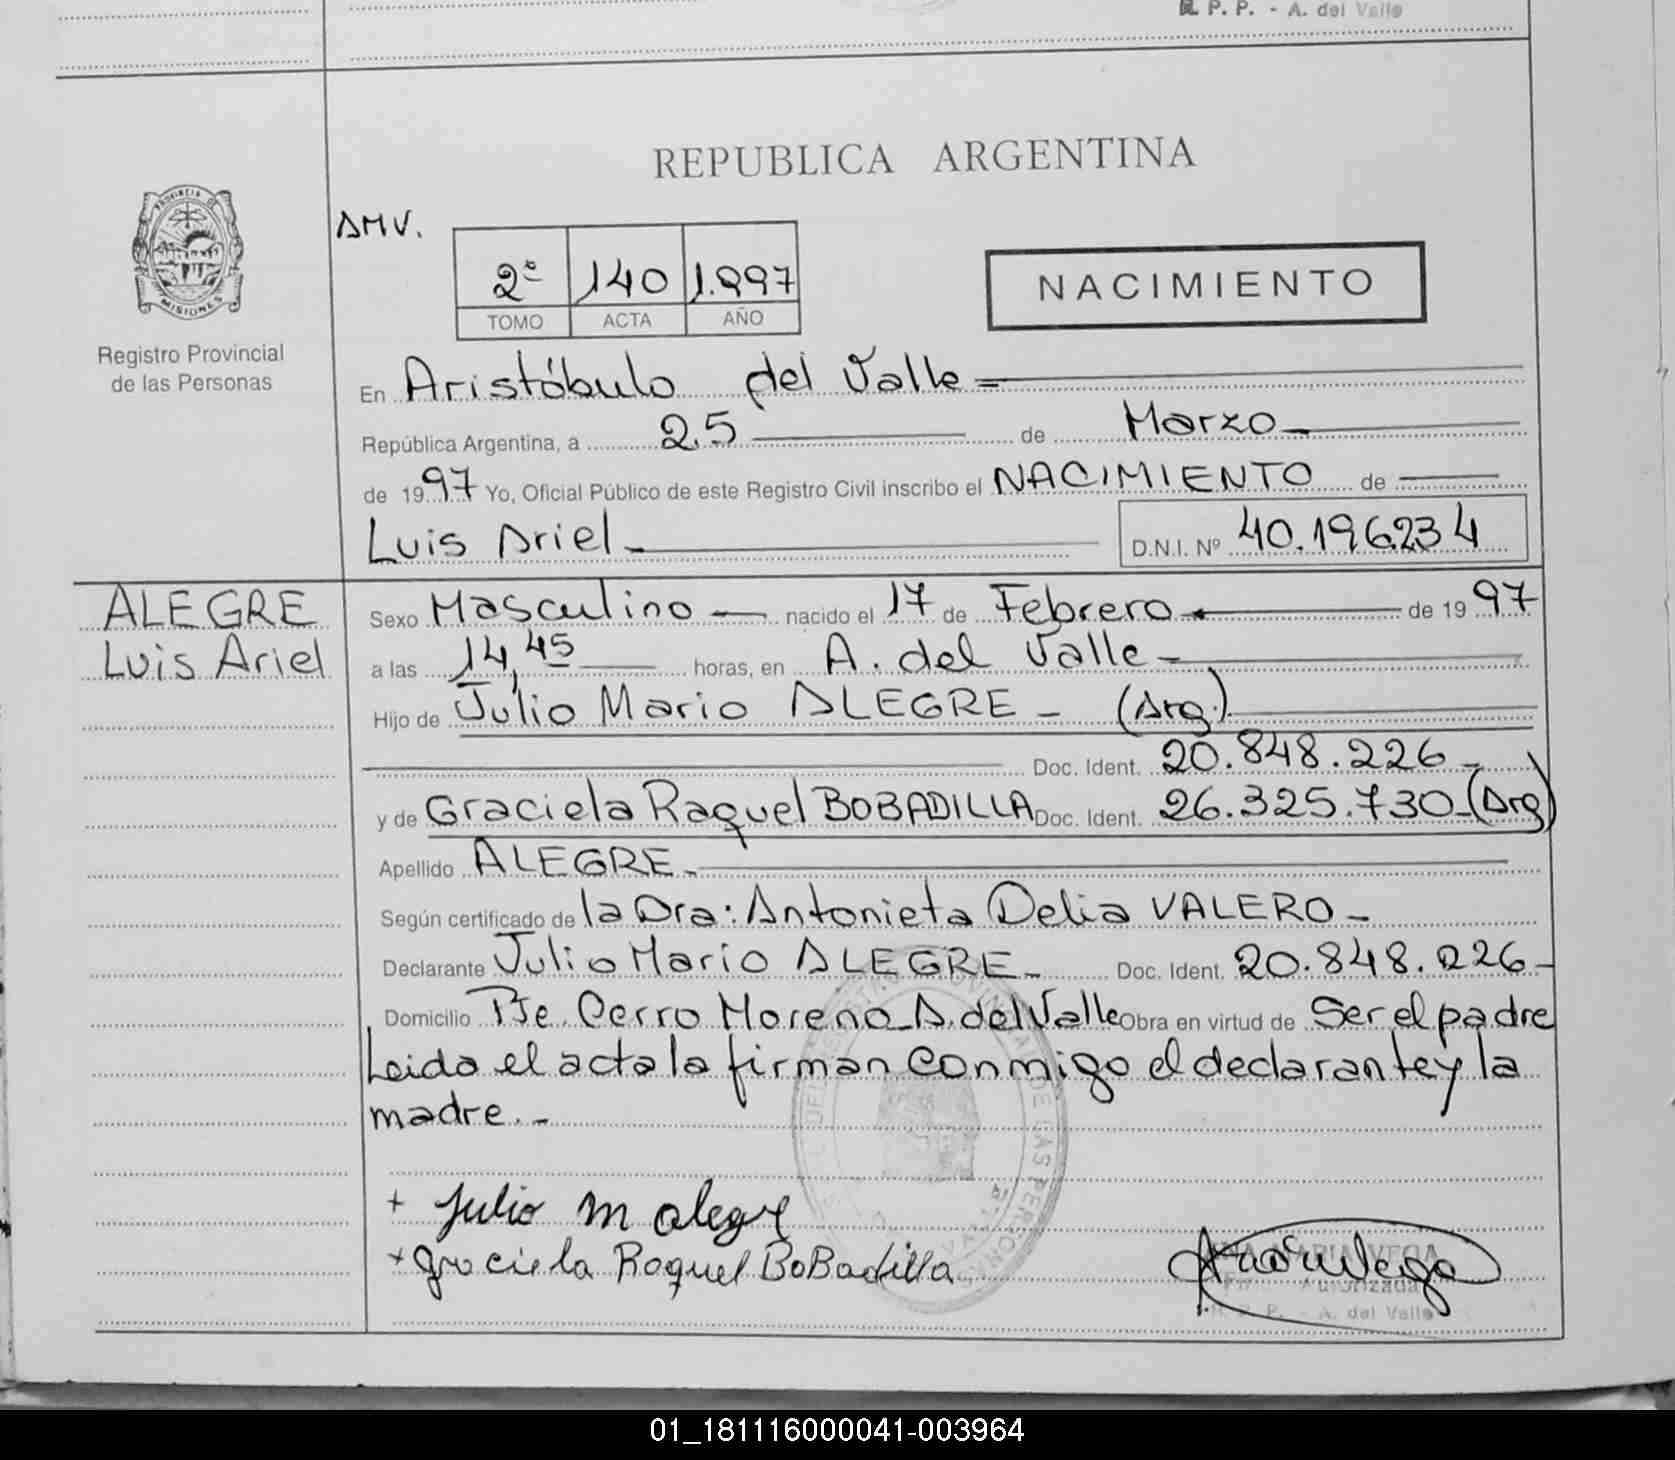 R. P. P. - A. del Valle
REPUBLICA ARGENTINA
PROVINCIA DE
MISIONES
Registro Provincial
de las Personas
AMV.
2º 140 1.997
TOMO ACTA AÑO
NACIMIENTO
En Aristóbulo del Valle
República Argentina, a 25 de Marzo
de 1997 Yo, Oficial Público de este Registro Civil inscribo el NACIMIENTO de
Luis Ariel D.N.I. Nº 40.196.234
ALEGRE
Luis Ariel
Sexo Masculino nacido el 17 de Febrero de 1997
a las 14,45 horas, en A. del Valle
Hijo de Julio Mario ALEGRE - (Arg.)
Doc. Ident. 20.848.226
y de Graciela Raquel BOBADILLA Doc. Ident. 26.325.730 (Arg)
Apellido ALEGRE
Según certificado de la Dra: Antonieta Delia VALERO
Declarante Julio Mario ALEGRE Doc. Ident. 20.848.226
Domicilio Pje. Cerro Moreno A. del Valle Obra en virtud de Ser el padre
Leida el acta la firman conmigo el declarante y la
madre.-
+ Julio M alegre
+ graciela Raquel BoBadilla
ANA MARIA VEGA
Autorizada
R. P. P. - A. del Valle
01_181116000041-003964